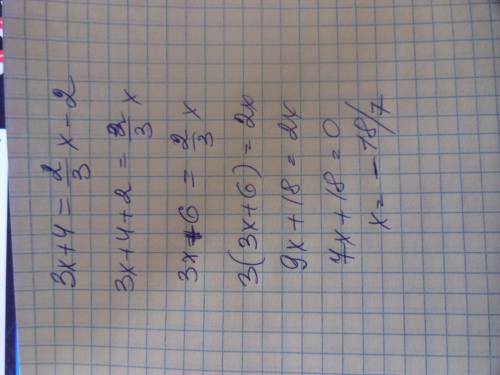 3x+4=2/3 x-2
3x+4+2=2/3 x
3x+6=2/3 x
3(3x+6)=2x
9x+18=2x
7x+18=0
x=-18/7